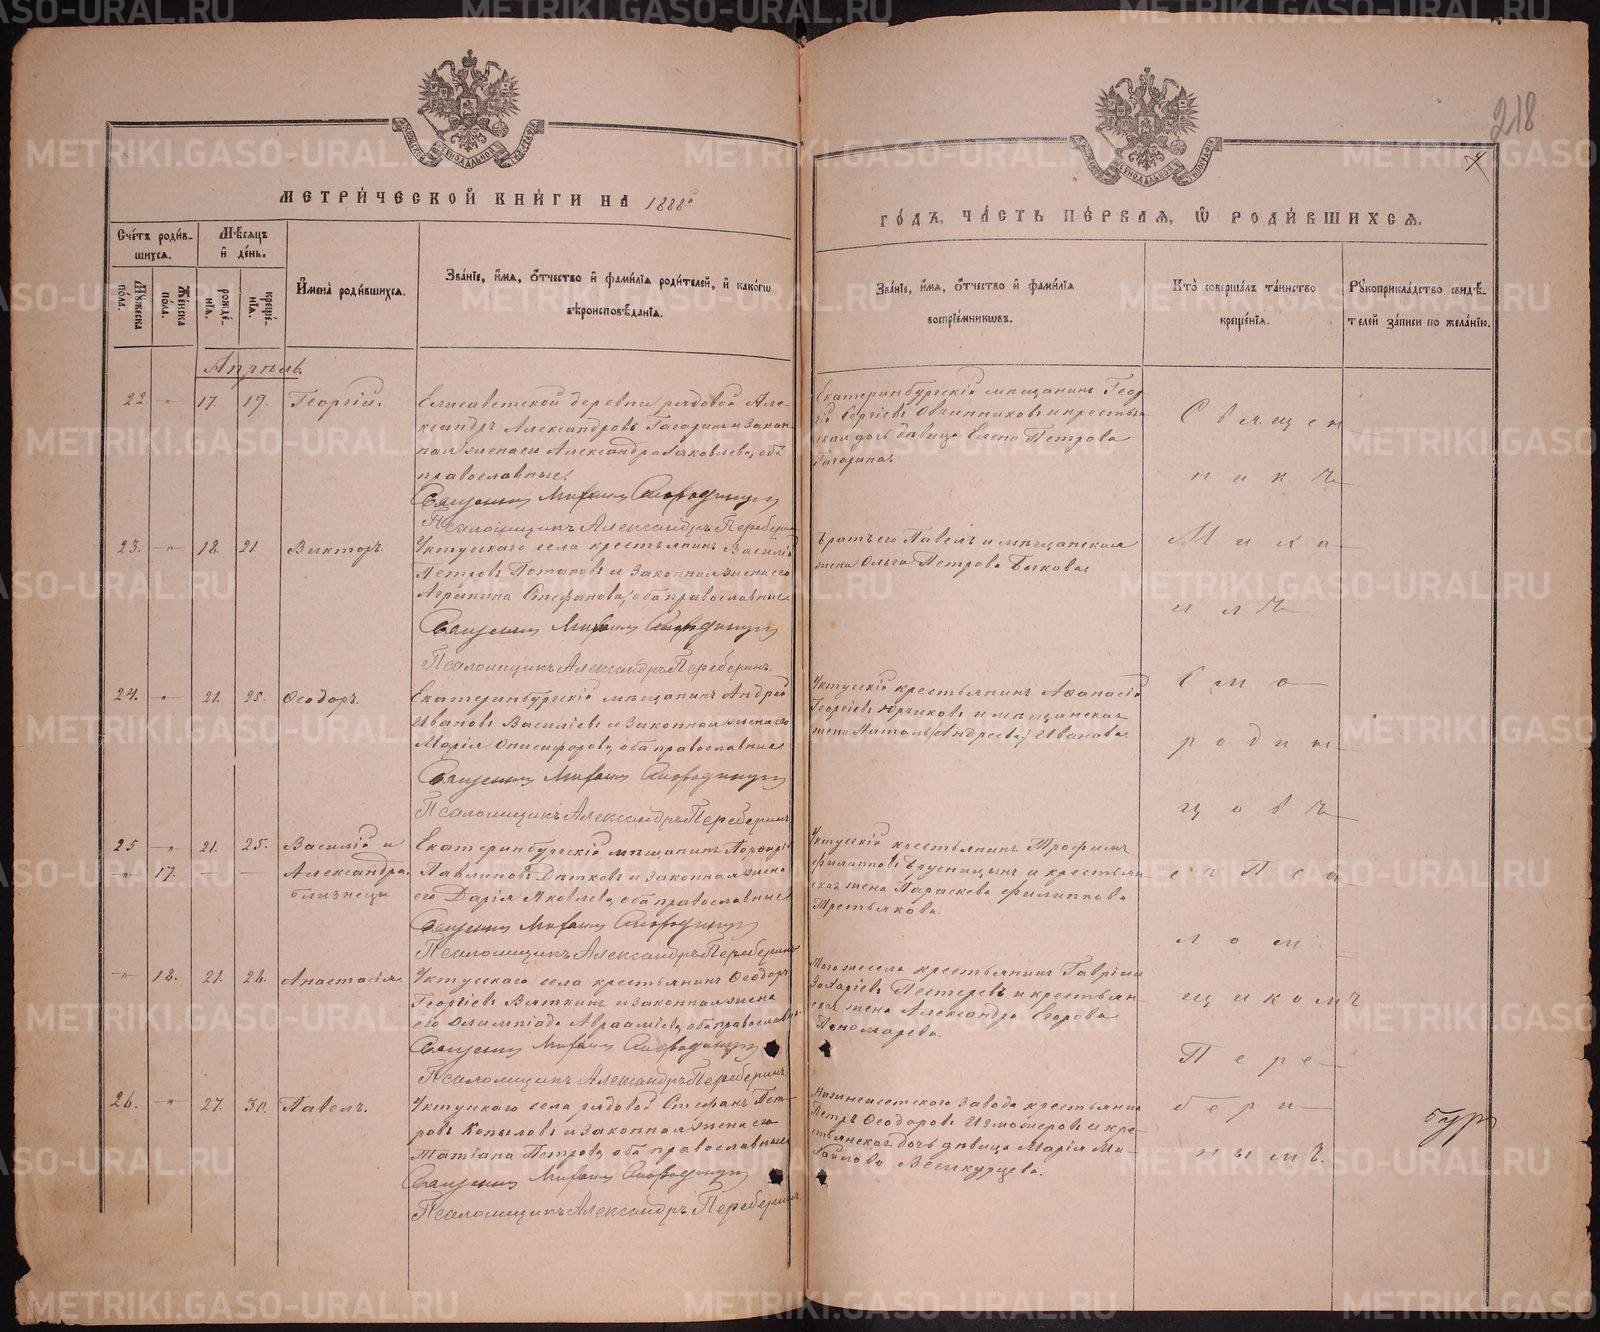 218
МЕТРИ́ЧЕСКОЙ КНИ́ГИ НА 1888й
ГО́ДЪ, ЧА́СТЬ ПЕ́РВАЯ, Ѡ РОДИ́ВШИХСЯ.
Сче́тъ роди́в-
шихся.
Му́жеска по́ла.
Же́нска по́ла.
Мѣ́сяцъ и де́нь.
рожде́-
нїя.
креще́-
нїя.
И҆мена̀ роди́вшихся.
Зва́нїе, и҆́мя, ѻ҆́тчество и҆ фами́лїя роди́телей, и҆ како́гѡ
вѣроисповѣ́данїя.
Зва́нїе, и҆́мя, ѻ҆́тчество и҆ фами́лїя
воспрїе́мникѡвъ.
Кто̀ соверша́лъ та́инство
креще́нїя.
Рꙋкоприкла́дство свидѣ́-
телей за́писи по жела́нїю.
Апрѣль.
22 " 17. 19. Георгій.
Елисаветской деревни рядовой Але-
ксандръ Александровъ Гагаринъ и закон-
ная жена его Александра Яковлева, оба
православные.
Священникъ Михаилъ Смородинцовъ
Псаломщикъ Александръ Переберинъ
Екатеринбургскій мѣщанинъ Геор-
гій Сергіевъ Овчинниковъ и крестья-
нская дочь дѣвица Елена Петрова
Гагарина.
23. " 18. 21 Викторъ.
Уктусскаго села крестьянинъ Василій
Петровъ Потаповъ и законная жена его
Агрипина Стефанова, оба православные
Священникъ Михаилъ Смородинцовъ
Псаломщикъ Александръ Переберинъ.
Братъ его Павелъ и мѣщанская
жена Ольга Петрова Быкова.
24. " 21. 25. Ѳеодоръ.
Екатеринбургскій мѣщанинъ Андрей
Ивановъ Василіевъ и законная жена его
Марія Онисифорова, оба православные
Священникъ Михаилъ Смородинцовъ
Псаломщикъ Александръ Переберинъ
Уктусскій крестьянинъ Аѳанасій
Георгіевъ и мѣщанская
жена Наталья Андреева Иванова.
25 " 21. 25. Василій и
" 17. — — Александра
близнецы
Екатеринбургскій мѣщанинъ
Павлиновъ и законная жена
его Дарія Яковлева, оба православные
Священникъ Михаилъ Смородинцовъ
Псаломщикъ Александръ Переберинъ
Уктусскій крестьянинъ Трофимъ
Филипповъ Брусницынъ и крестьян-
ская жена Параскева Филиппова
Третьякова.
" 18. 21. 26. Анастасія.
Уктусскаго села крестьянинъ Ѳеодоръ
Георгіевъ Вяткинъ и законная жена
его Олимпіада Авраамова, оба православн.
Священникъ Михаилъ Смородинцовъ
Псаломщикъ Александръ Переберинъ.
Того же села крестьянинъ Гавріилъ
Захаріевъ Пестеревъ и крестьян-
ская жена Александра Егорова
Пономарева.
26. " 27. 30. Павелъ.
Уктусскаго села рядовой Стефанъ Пет-
ровъ Копыловъ и законная жена его
Татіана Петрова, оба православные
Священникъ Михаилъ Смородинцовъ
Псаломщикъ Александръ Переберинъ.
Нижнеисетскаго завода крестьянинъ
Петръ Ѳеодоровъ Изможеровъ и кре-
стьянская дочь дѣвица Марія Ми-
хайлова
Священ
никъ
Миха
илъ
Смо
родин
цовъ
съ Пса
лом
щикомъ
Пере
бери
нымъ.
METRIKI.GASO-URAL.RU